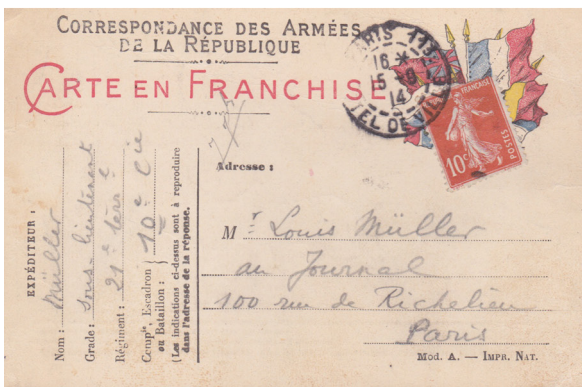 CORRESPONDANCE DES ARMÉES
DE LA RÉPUBLIQUE
CARTE EN FRANCHISE
PARIS 113
16 *
15 - 9
14
HOTEL DE VILLE
RÉPUBLIQUE FRANÇAISE
POSTES
10c
EXPÉDITEUR :
Nom : Müller
Grade : sous-lieutenant
Régiment : 21e terr l
Compie, Escadron
ou Bataillon : } 10e Cie
(Les indications ci-dessus sont à reproduire
dans l'adresse de la réponse.
Adresse :
Mr Louis Müller
au Journal
100 rue de Richelieu
Paris
MOD. A. — IMPR. NAT.